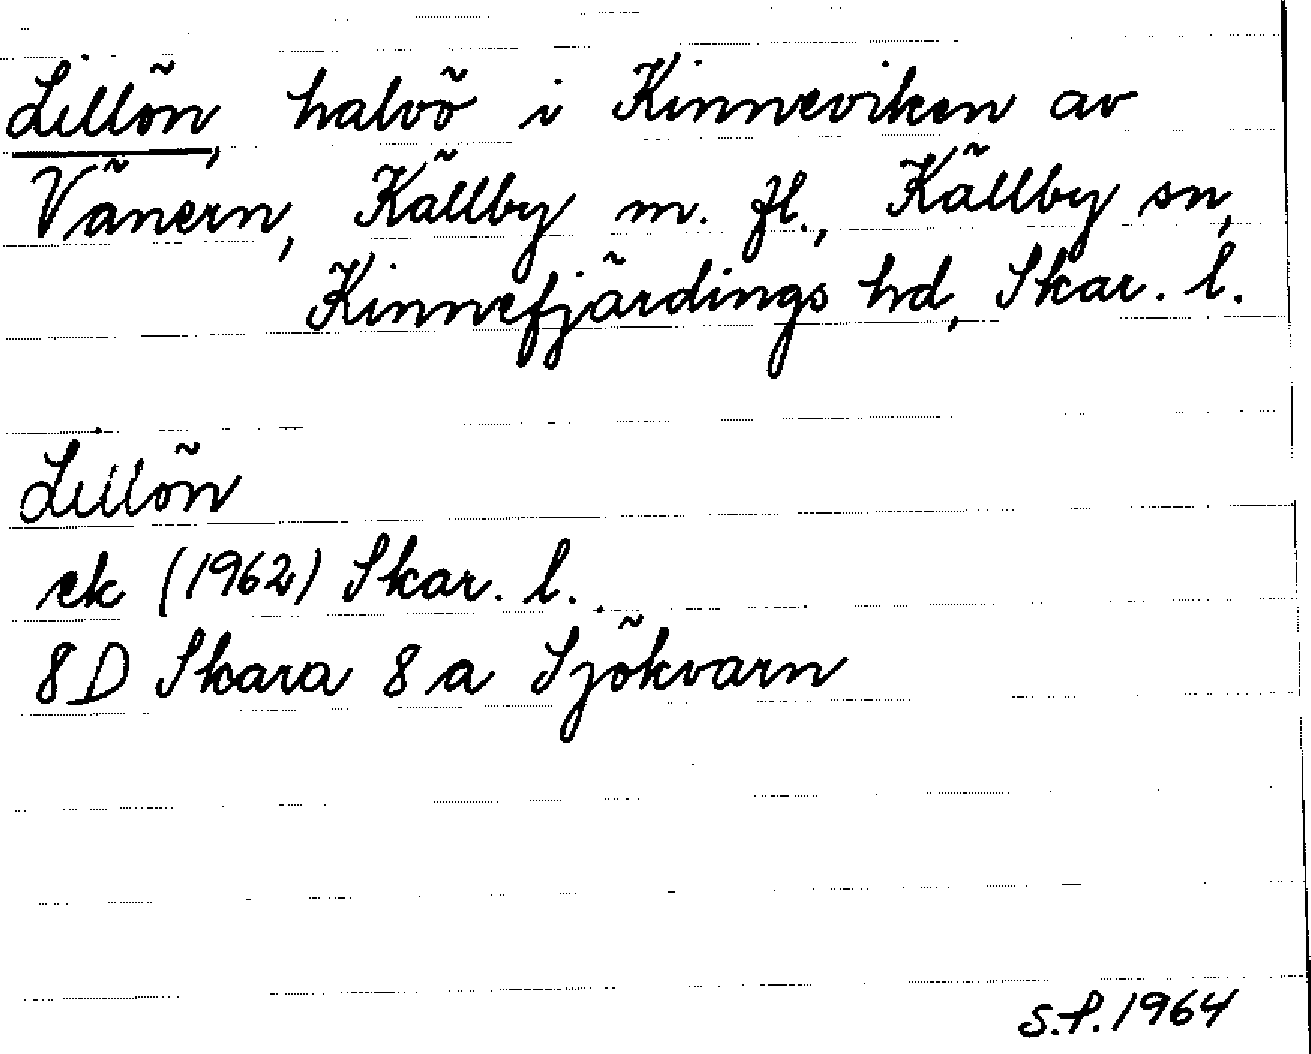 Lillön, halvö i Kinneviken av
Vänern, Källby m. fl., Källby sn,
Kinnefjärdings hd, Skar. l.
Lillön
ek (1962) Skar. l.
8D Skara 8 a Sjökvarn
S.P. 1964